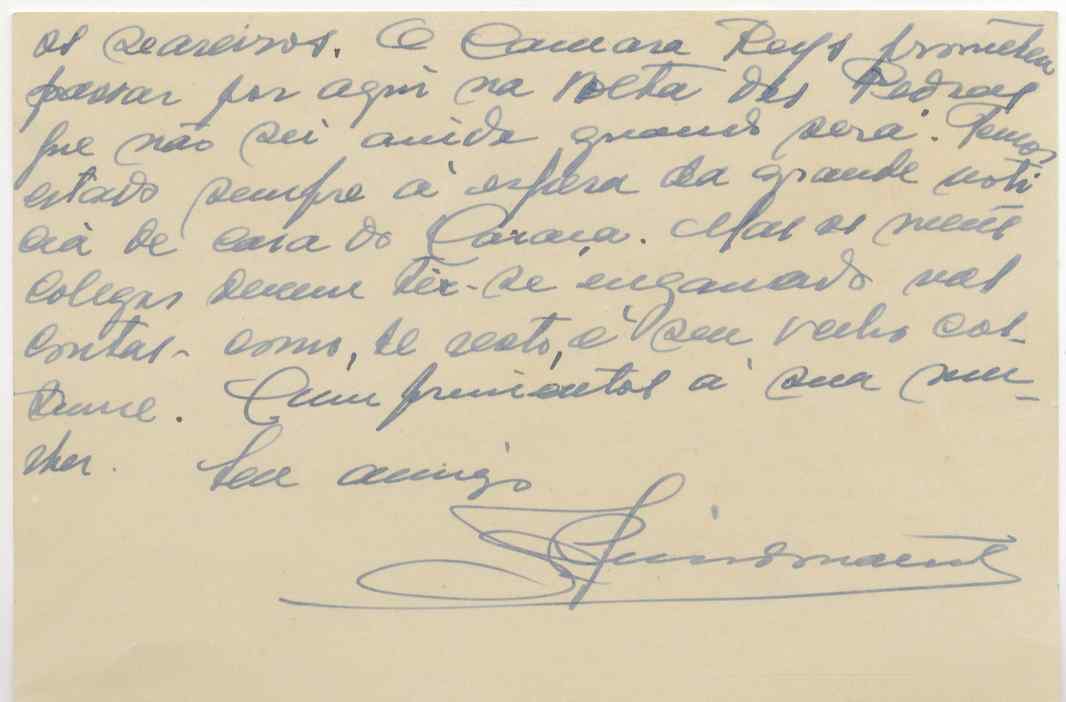 os seareiros. O Camara Reys prometeu
passar por aqui na volta das Pedras
que não sei ainda quando será. Temos
estado sempre à espera da grande notí
cia de casa do Caraça. Mas os meus
colegas devem ter-se enganado nas
contas - como, de resto, é seu velho cos-
tume. Cumprimentos a sua mu-
lher. Seu amigo